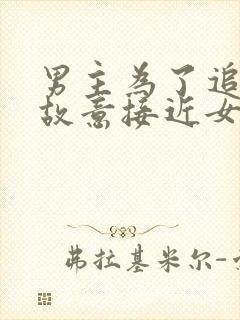 男主為了追
故意接近女
弗拉基米尔-